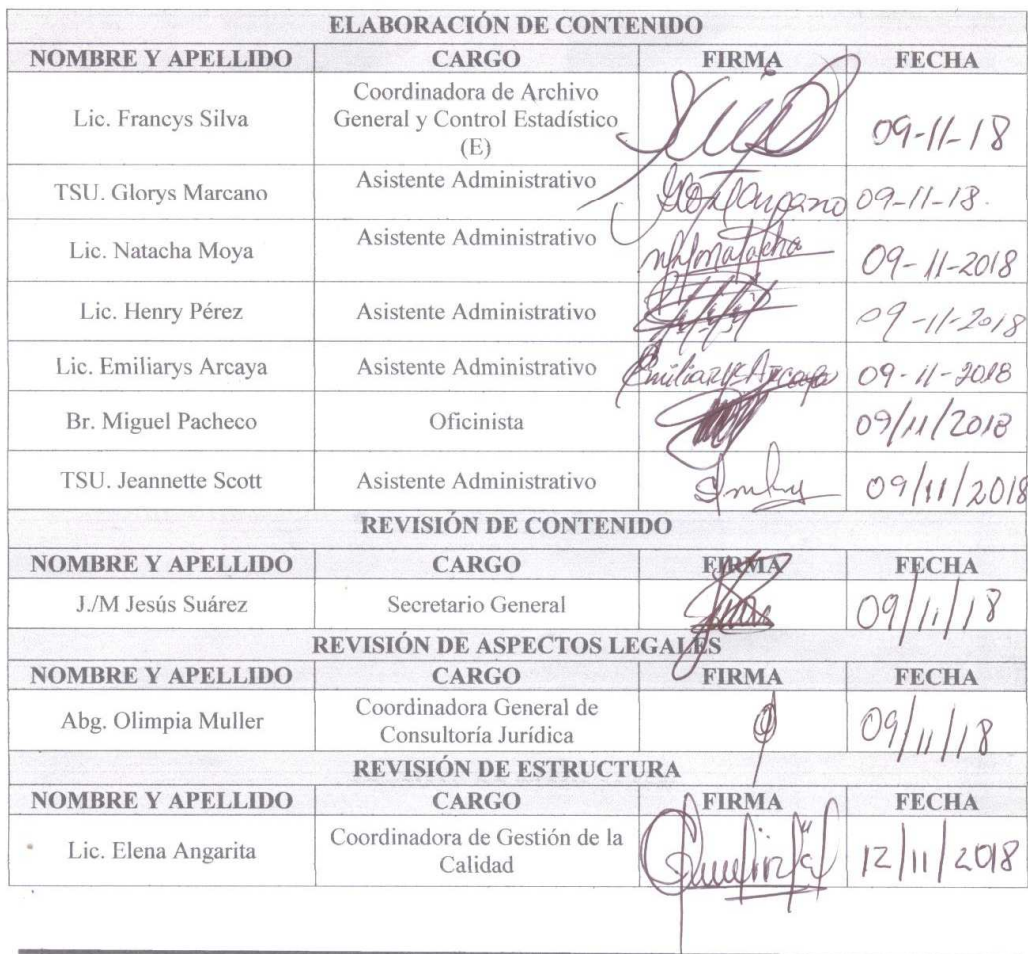 ELABORACIÓN DE CONTENIDO
NOMBRE Y APELLIDO CARGO FIRMA FECHA
Lic. Francys Silva Coordinadora de Archivo General y Control Estadístico (E) 09-11-18
TSU. Glorys Marcano Asistente Administrativo 09-11-18.
Lic. Natacha Moya Asistente Administrativo 09-11-2018
Lic. Henry Pérez Asistente Administrativo 09-11-2018
Lic. Emiliarys Arcaya Asistente Administrativo Emiliarys Arcaya 09-11-2018
Br. Miguel Pacheco Oficinista 09/11/2018
TSU. Jeannette Scott Asistente Administrativo 09/11/2018
REVISIÓN DE CONTENIDO
NOMBRE Y APELLIDO CARGO FIRMA FECHA
J./M Jesús Suárez Secretario General 09/11/18
REVISIÓN DE ASPECTOS LEGALES
NOMBRE Y APELLIDO CARGO FIRMA FECHA
Abg. Olimpia Muller Coordinadora General de Consultoría Jurídica 09/11/18
REVISIÓN DE ESTRUCTURA
NOMBRE Y APELLIDO CARGO FIRMA FECHA
Lic. Elena Angarita Coordinadora de Gestión de la Calidad 12/11/2018